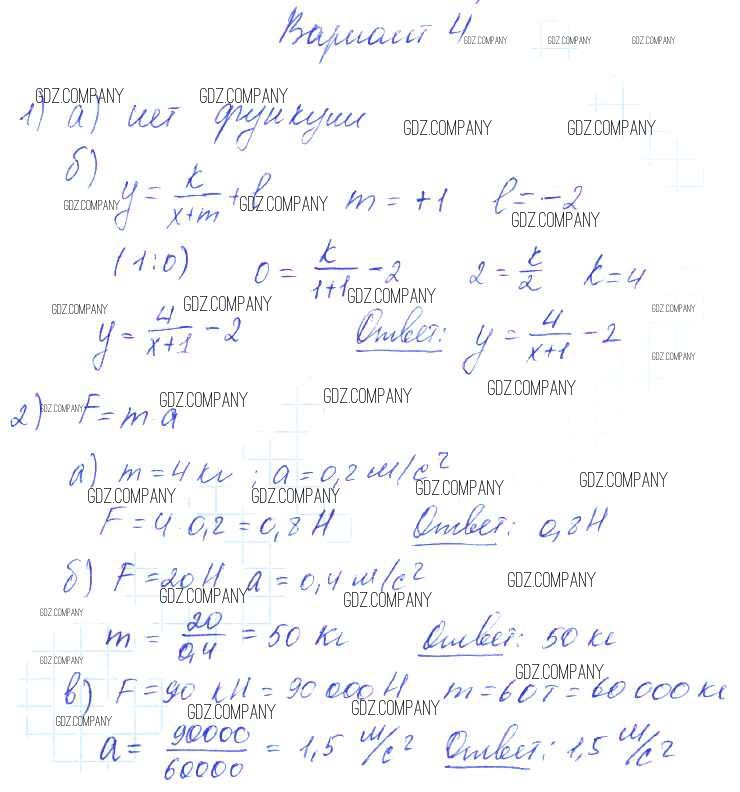 Вариант 4
GDZ.COMPANY GDZ.COMPANY GDZ.COMPANY
GDZ.COMPANY GDZ.COMPANY
1) а) нет функции
GDZ.COMPANY GDZ.COMPANY
б) y = k/(x+m) + l m = +1 l = -2
GDZ.COMPANY GDZ.COMPANY GDZ.COMPANY
(1:0) 0 = k/(1+1) - 2 2 = k/2 k = 4
GDZ.COMPANY GDZ.COMPANY GDZ.COMPANY GDZ.COMPANY
y = 4/(x+1) - 2 Ответ: y = 4/(x+1) - 2
GDZ.COMPANY
GDZ.COMPANY GDZ.COMPANY GDZ.COMPANY GDZ.COMPANY
2) F = m·a
а) m = 4 кг ; a = 0,2 м/с²
GDZ.COMPANY GDZ.COMPANY GDZ.COMPANY GDZ.COMPANY
F = 4·0,2 = 0,8 Н Ответ: 0,8 Н
б) F = 20 Н a = 0,4 м/с²
GDZ.COMPANY GDZ.COMPANY GDZ.COMPANY
GDZ.COMPANY
m = 20/0,4 = 50 кг Ответ: 50 кг
GDZ.COMPANY GDZ.COMPANY
в) F = 90 кН = 90 000 Н m = 60 т = 60 000 кг
GDZ.COMPANY GDZ.COMPANY GDZ.COMPANY
a = 90000/60000 = 1,5 м/с² Ответ: 1,5 м/с²